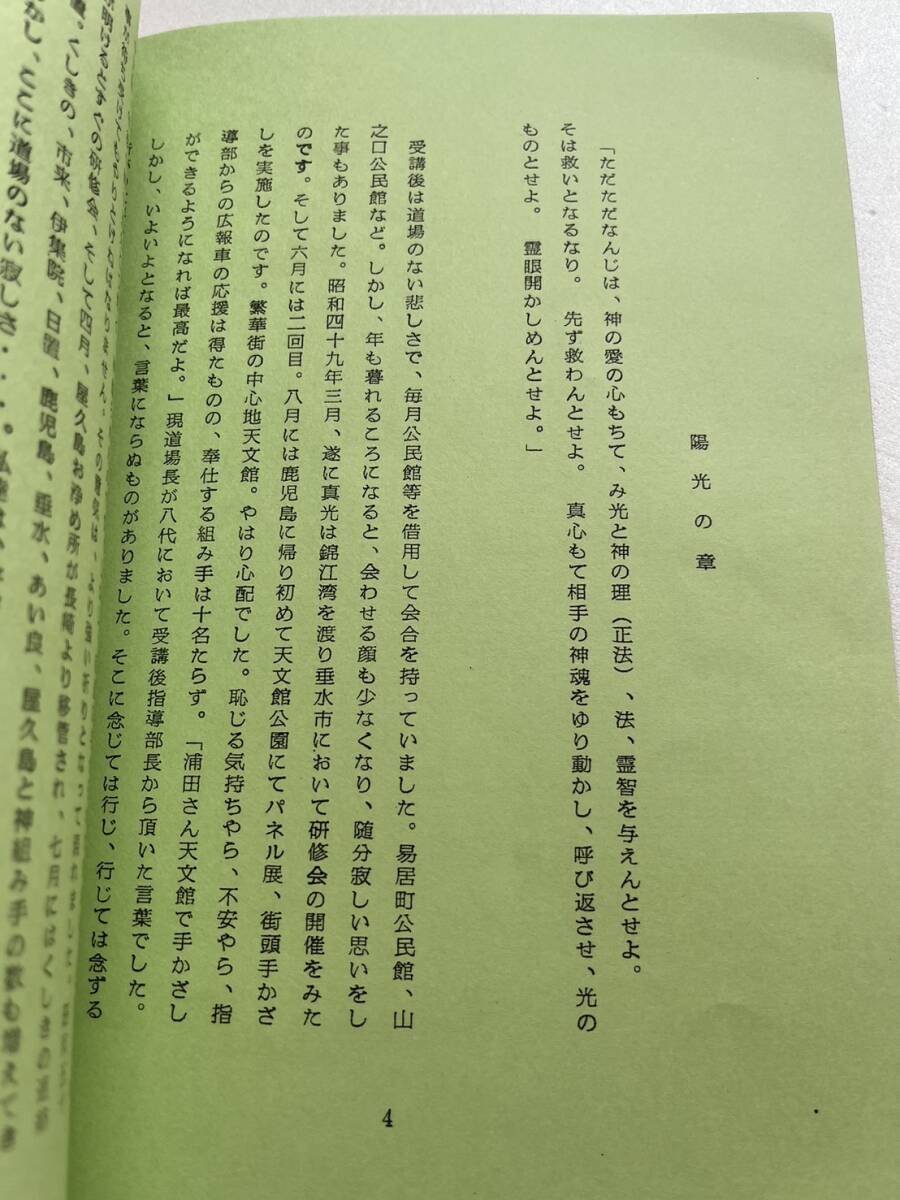 陽光の章
「ただただなんじは、神の愛の心もちて、み光と神の理(正法)、法、霊智を与えんとせよ。
そは救いとなるなり。 先ず救わんとせよ。 真心もて相手の神魂をゆり動かし、呼び返させ、光の
ものとせよ。 霊眼開かしめんとせよ。」
受講後は道場のない悲しさで、毎月公民館等を借用して会合を持っていました。易居町公民館、山
之口公民館など。しかし、年も暮れるころになると、会わせる顔も少なくなり、随分寂しい思いをし
た事もありました。昭和四十九年三月、遂に真光は錦江湾を渡り垂水市において研修会の開催をみた
のです。そして六月には二回目。八月には鹿児島に帰り初めて天文館公園にてパネル展、街頭手かざ
しを実施したのです。繁華街の中心地天文館。やはり心配でした。恥じる気持ちやら、不安やら、指
導部からの広報車の応援は得たものの、奉仕する組み手は十名たらず。「浦田さん天文館で手かざし
ができるようになれば最高だよ。」現道場長が八代において受講後指導部長から頂いた言葉でした。
しかし、いよいよとなると、言葉にならぬものがありました。そこに念じては行じ、行じては念ずる
4
が明けるとすぐの研修会、そして四月、屋久島お浄め所が長崎より移管され、七月にはくしきの
くしきの、市来、伊集院、日置、鹿児島、垂水、あい良、屋久島と神組み手の数も増えてき
かし、ここに道場のない寂しさ・・・・。